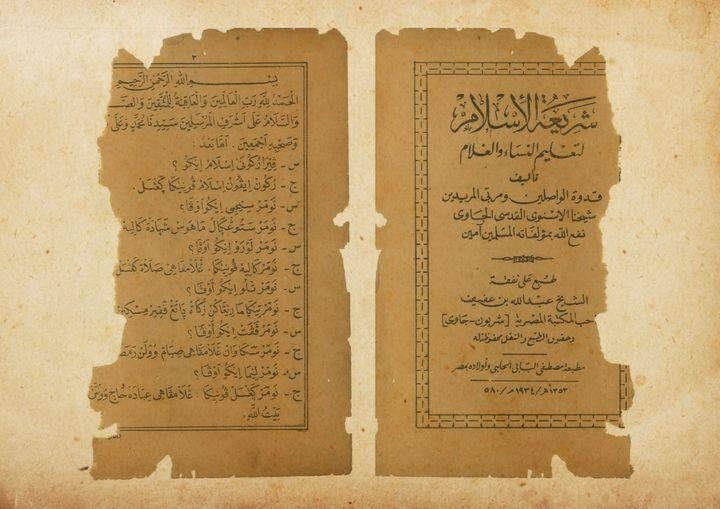 شريعة الإسلام
لتعليم النساء والغلام
تأليف
قدوة الواصلين ومربي المريدين
شيخنا الاسنوى القدسى الجاوى
نفع الله بمؤلفاته المسلمين آمين
طبع على نفقة
الشيخ عبدالله بن عفيف
حب المكتبة المصرية [شربون - جاوى]
وحقوق الطبع والنقل محفوظة له
مطبعة مصطفى البابى الحلبى وأولاده بمصر
١٣٥٣ هـ / ١٩٣٤ م / ٥٨٠
٢
بِسْمِ اللهِ الرَّحْمٰنِ الرَّحِيمِ
الْحَمْدُ لِلّٰهِ رَبِّ الْعَالَمِينَ وَالْعَاقِبَةُ لِلْمُتَّقِينَ وَالصَّ
وَالسَّلَامُ عَلَى أَشْرَفِ الْمُرْسَلِينَ سَيِّدِنَا مُحَمَّدٍ وَعَلَى
وَصَحْبِهِ أَجْمَعِينَ . أَمَّا بَعْدُ :
س - ڤيرا ركونى إسلام إيكو ؟
ج - ركون إيڤون إسلام ڤونيكا ڬڠسل .
س - نومر سيجى إيكو أوڤا ؟
ج - نومر ستوڠڬال ماهوس شهادة كاليه
س - نومر لورو إيكو أوڤا ؟
ج - نومر كاليه ڤونيكا . غلامڤاهى صلاة ڬڠسل
س - نومر تلو إيكو أوڤا ؟
ج - نومر تيڬا ماريڠاكن زكاة
س - نومر ڤڤت إيكو أوڤا ؟
ج - نومر سكاوان غلامڤاهى صيام وولن رمض
س - نومر ليما إيكو أوڤا ؟
ج - نومر ڬڠسل ڤونيكا : غلامڤاهى عبادة حاج
بيت الله .